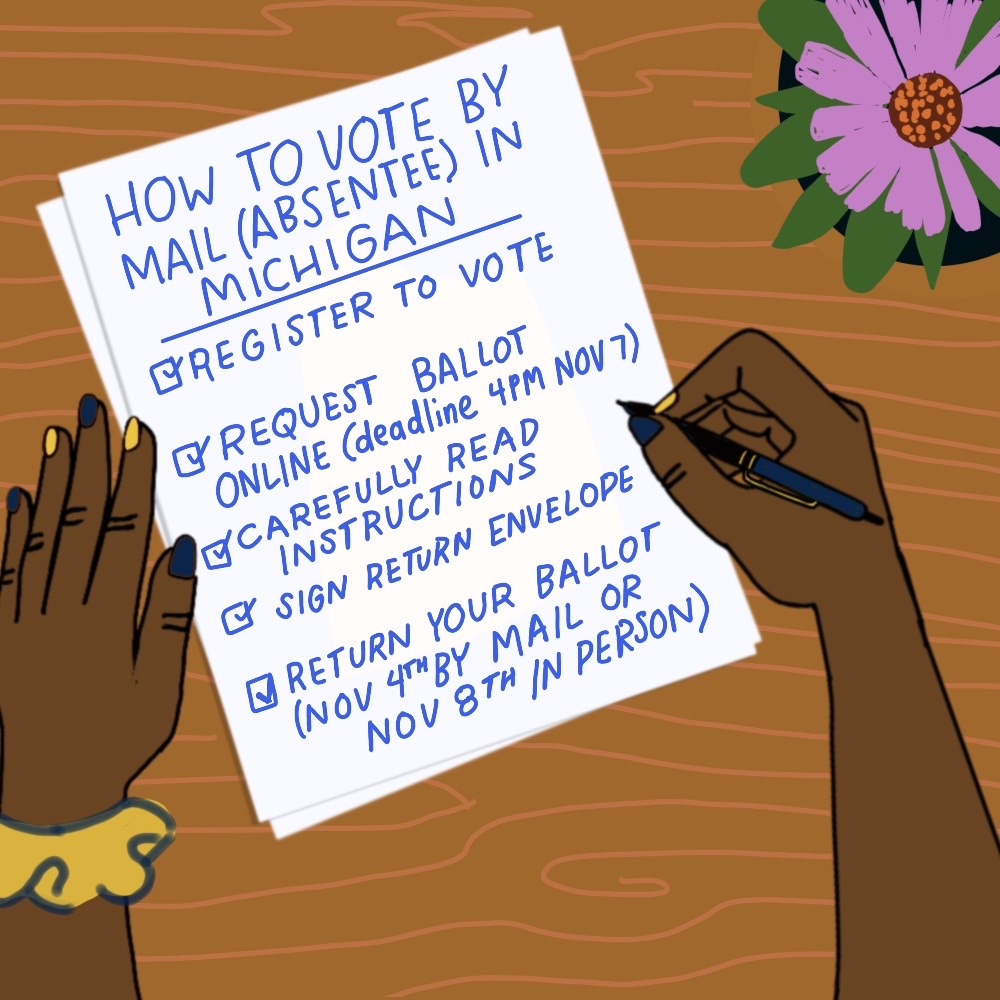 HOW TO VOTE BY
MAIL (ABSENTEE) IN
MICHIGAN
REGISTER TO VOTE
REQUEST BALLOT
ONLINE (deadline 4PM NOV 7)
CAREFULLY READ
INSTRUCTIONS
SIGN RETURN ENVELOPE
RETURN YOUR BALLOT
(NOV 4TH BY MAIL OR
NOV 8TH IN PERSON)